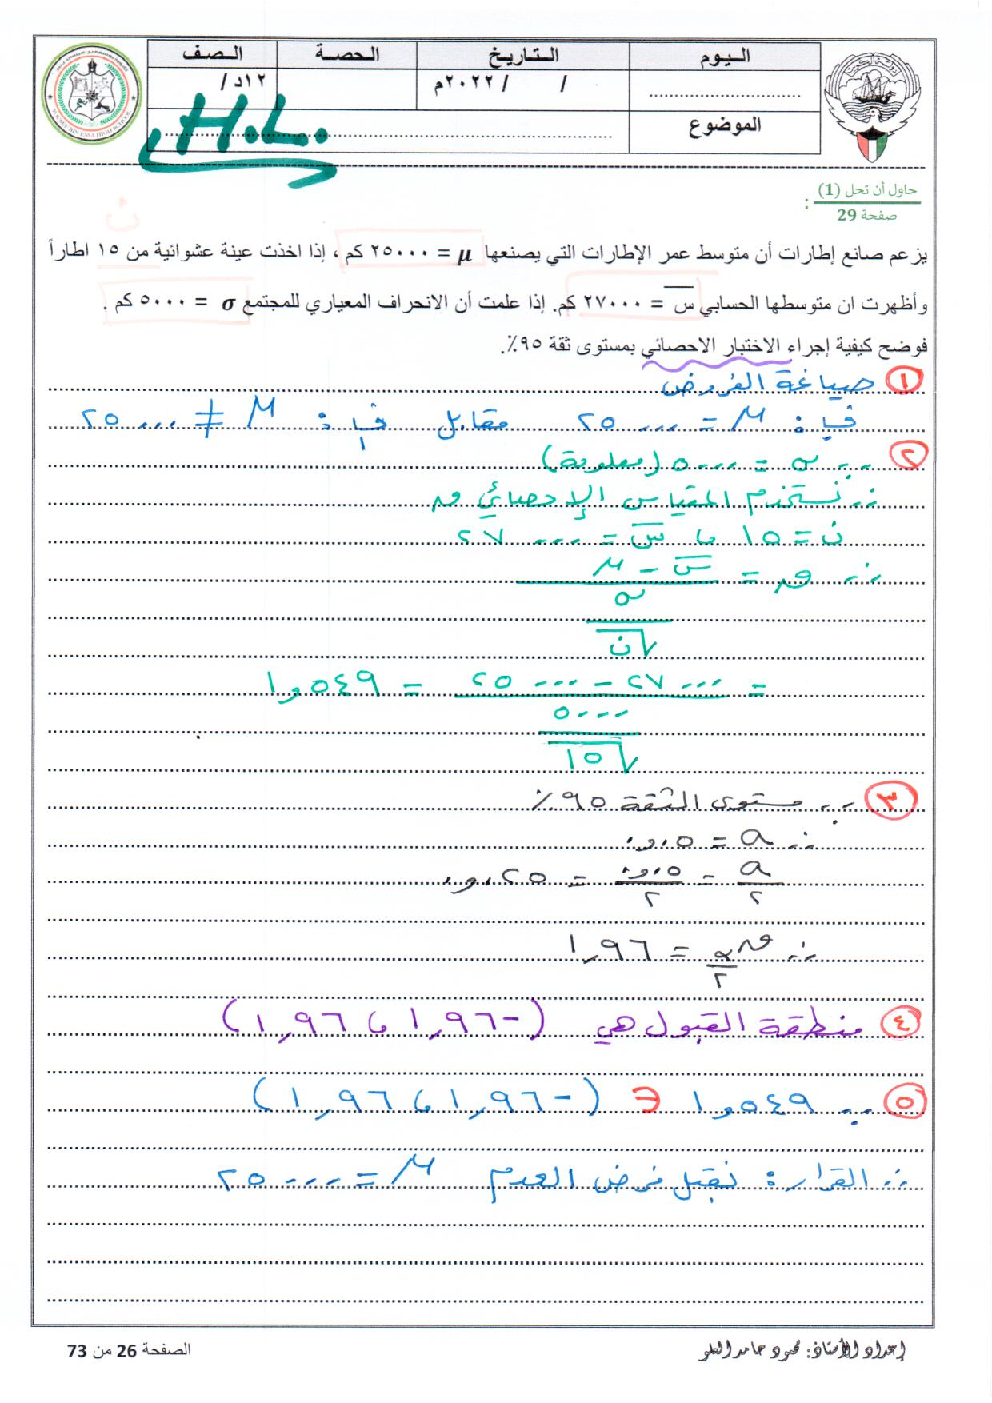 اليوم التاريخ الحصة الصف
................ / / ٢٠٢٢م ١٢د /
الموضوع
H.L.
حاول أن تحل (1)
صفحة 29 :
ن
يزعم صانع إطارات أن متوسط عمر الإطارات التي يصنعها μ = ٢٥٠٠٠ كم ، إذا اخذت عينة عشوائية من ١٥ اطاراً
وأظهرت ان متوسطها الحسابي س̄ = ٢٧٠٠٠ كم. إذا علمت أن الانحراف المعياري للمجتمع σ = ٥٠٠٠ كم .
فوضح كيفية إجراء الاختبار الاحصائي بمستوى ثقة ٩٥٪.
١ صياغة الفروض
ف. : μ = ٢٥٠٠٠ مقابل ف١ : μ ≠ ٢٥٠٠٠
٢ ∵ σ = ٥٠٠٠ (معلومة)
∴ نستخدم المقياس الإحصائي ق
ن = ١٥ ، س̄ = ٢٧٠٠٠
∴ ق = س̄ - μ
σ
√ن
= ٢٧٠٠٠ - ٢٥٠٠٠ = ١,٥٤٩
٥٠٠٠
√١٥
٣ ∵ مستوى الثقة ٩٥٪
∴ α = ٠,٠٥
α/٢ = ٠,٠٥/٢ = ٠,٠٢٥
∴ ق α/٢ = ١,٩٦
٤ منطقة القبول هي (-١,٩٦ ، ١,٩٦)
٥ ∵ ١,٥٤٩ ∈ (-١,٩٦ ، ١,٩٦)
∴ القرار : نقبل فرض العدم μ = ٢٥٠٠٠
إعداد الأستاذ: محمود حامد
الصفحة 26 من 73